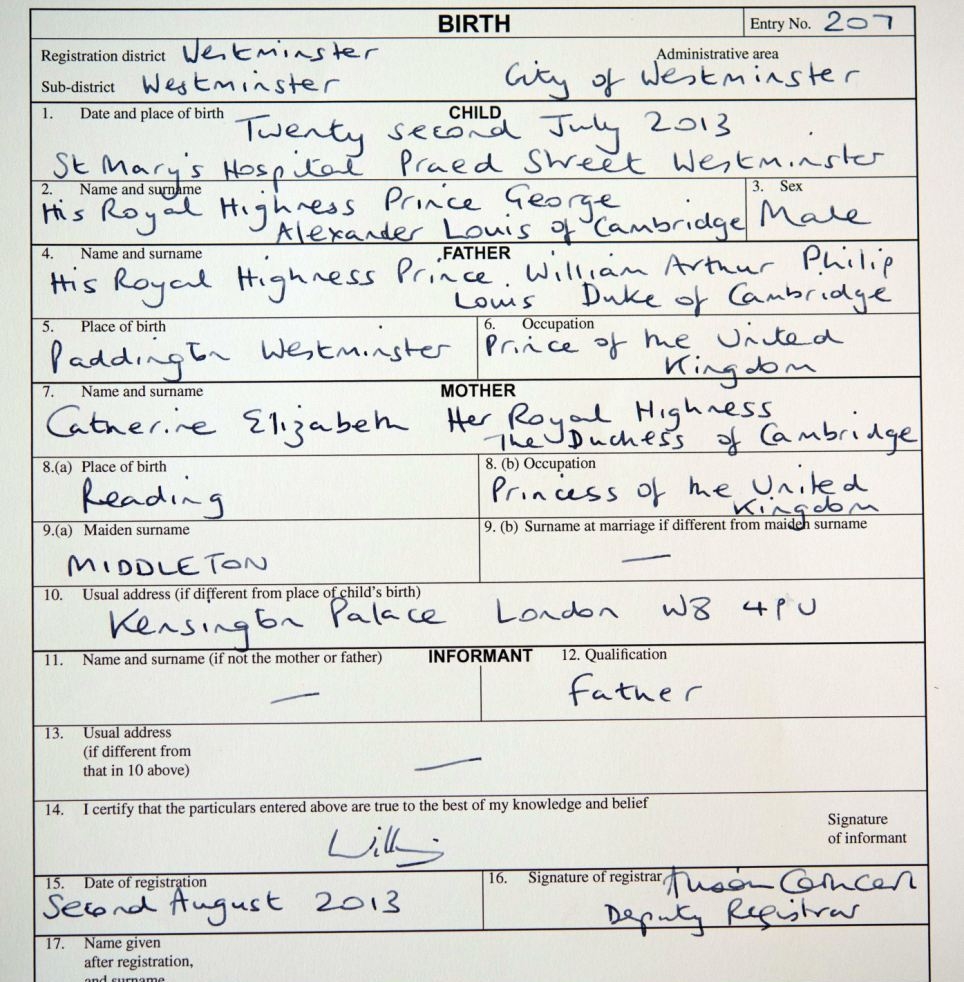 BIRTH
Entry No. 207
Registration district Westminster
Administrative area
Sub-district Westminster
City of Westminster
CHILD
1. Date and place of birth
Twenty second July 2013
St Mary's Hospital Praed Street Westminster
2. Name and surname
His Royal Highness Prince George
Alexander Louis of Cambridge
3. Sex
Male
FATHER
4. Name and surname
His Royal Highness Prince William Arthur Philip
Louis Duke of Cambridge
5. Place of birth
Paddington Westminster
6. Occupation
Prince of the United
Kingdom
MOTHER
7. Name and surname
Catherine Elizabeth Her Royal Highness
The Duchess of Cambridge
8.(a) Place of birth
Reading
8. (b) Occupation
Princess of the United
Kingdom
9.(a) Maiden surname
MIDDLETON
9. (b) Surname at marriage if different from maiden surname
—
10. Usual address (if different from place of child's birth)
Kensington Palace London W8 4PU
INFORMANT
11. Name and surname (if not the mother or father)
—
12. Qualification
Father
13. Usual address
(if different from
that in 10 above)
—
14. I certify that the particulars entered above are true to the best of my knowledge and belief
Signature
of informant
15. Date of registration
Second August 2013
16. Signature of registrar
Deputy Registrar
17. Name given
after registration,
and surname